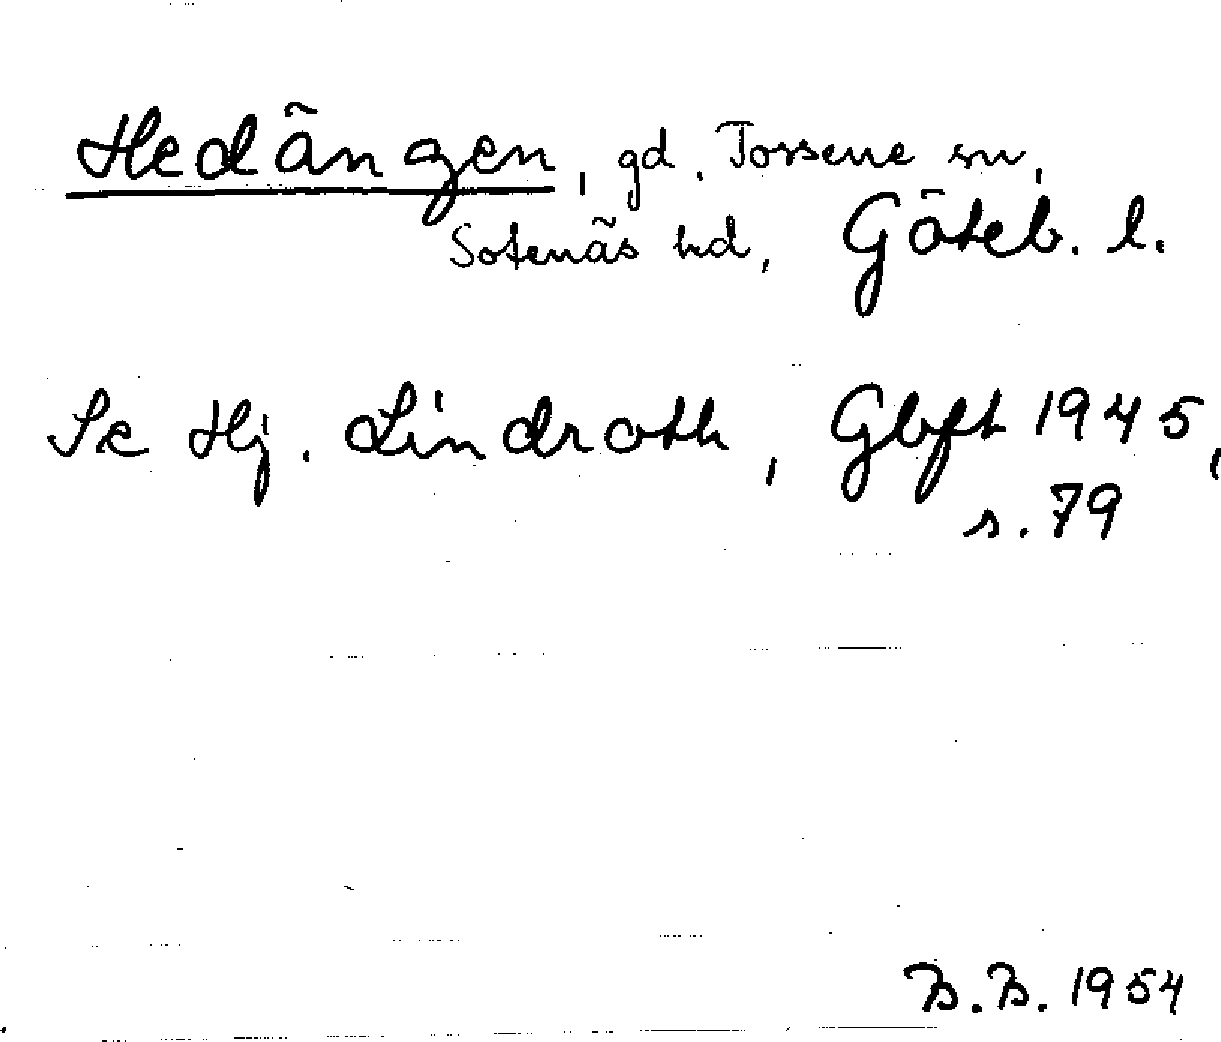 Hedängen, gd. Tossene sn,
Sotenäs hd, Göteb. l.
Se Hj. Lindroth, Gbft 1945,
s. 79
B.B. 1954